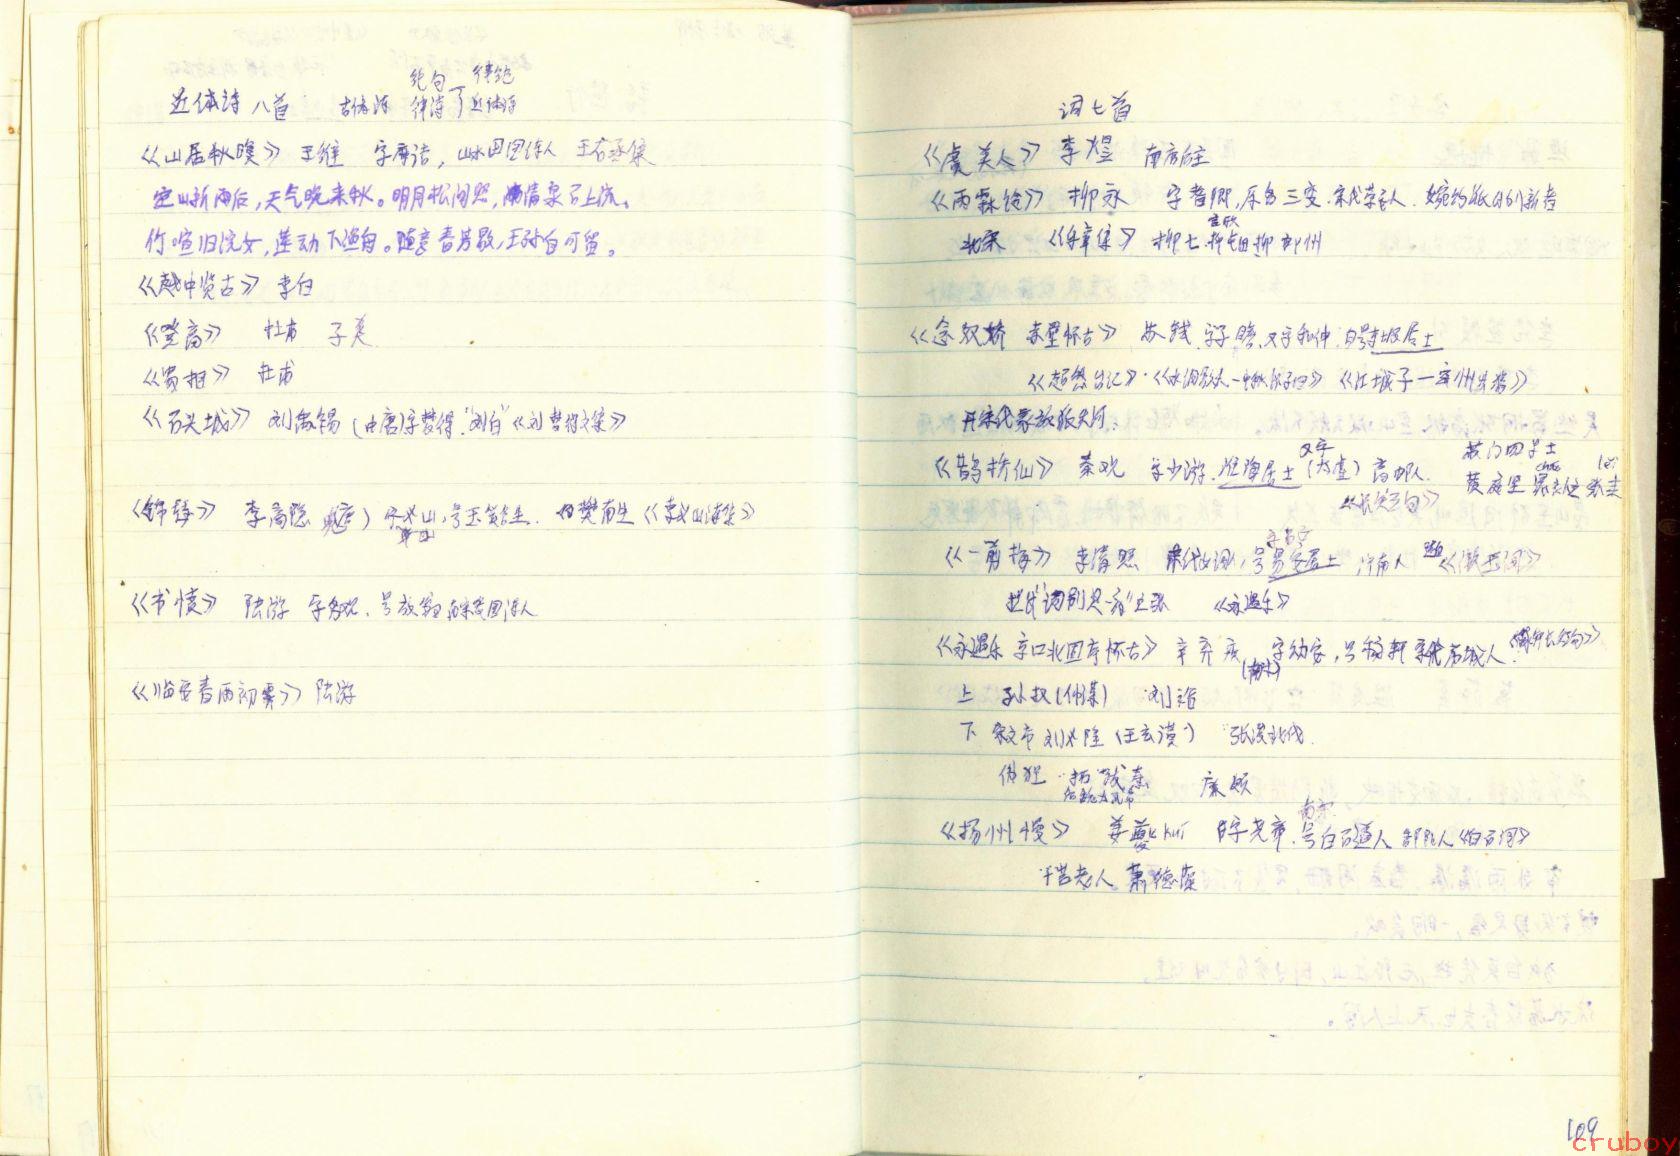 绝句 律绝
近体诗 八首 古体诗 律诗 近体诗
《山居秋暝》 王维 字摩诘，山水田园诗人 王右丞集
空山新雨后，天气晚来秋。明月松间照，清泉石上流。
竹喧归浣女，莲动下渔舟。随意春芳歇，王孙自可留。
《越中览古》 李白
《登高》 杜甫 子美
《蜀相》 杜甫
《石头城》 刘禹锡 (中唐)字梦得."刘白"《刘梦得文集》
《锦瑟》 李商隐 晚唐) 字义山,号玉谿生. 樊南生《李义山诗集》
《书愤》 陆游 字务观. 号放翁 南宋爱国诗人
《临安春雨初霁》 陆游
词七首
《虞美人》 李煜 南唐后主
《雨霖铃》 柳永 字耆卿,原名三变.宋代 婉约派 创新者
北宋 《乐章集》 柳七 柳屯田 柳郎州
《念奴娇 赤壁怀古》 苏轼.字子瞻.又字和仲.自号东坡居士
《超然台记》.《水调歌头一中秋 》《江城子一密州出猎》
开宋代豪放派先河.
又字 苏门四学士
《鹊桥仙》 秦观 字少游.淮海居士 (太虚) 高邮人. 黄庭坚 晁补之 张耒
chao lei
《淮海长短句》
《一剪梅》 李清照 宋代女词人,号易安居士 济南人 《漱玉词》
提出"词别是一家"主张 《永遇乐》
《永遇乐 京口北固亭怀古》 辛弃疾 字幼安,号稼轩 历城人.《稼轩长短句》
(南宋)
上 孙权(仲谋) 刘裕
下 宋文帝 刘义隆 (王玄谟) 张浚北伐.
佛狸 拓跋焘 廉颇
北魏太武帝
南宋
《扬州慢》 姜夔kui 字尧章.号白石道人 鄱阳人《白石词》
千岩老人 萧德藻
109
cruboy